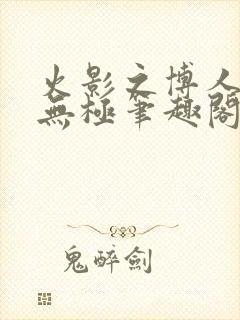 火影之博人
無極筆趣閣
鬼醉劍